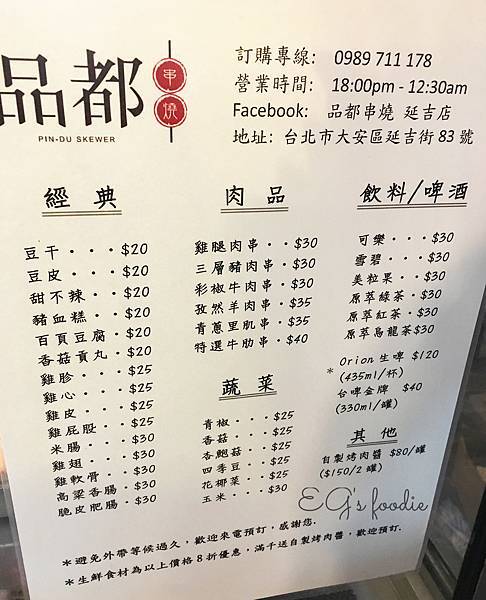 品都 串燒
PIN-DU SKEWER
訂購專線: 0989 711 178
營業時間: 18:00pm - 12:30am
Facebook: 品都串燒 延吉店
地址: 台北市大安區延吉街 83 號
經典
豆干・・・$20
豆皮・・・$20
甜不辣・・$20
豬血糕・・$20
百頁豆腐・$20
香菇貢丸・$20
雞胗・・・$25
雞心・・・$25
雞皮・・・$25
雞屁股・・$25
米腸・・・$30
雞翅・・・$30
雞軟骨・・$30
高粱香腸・$30
脆皮肥腸・$30
肉品
雞腿肉串・・$30
三層豬肉串・$30
彩椒牛肉串・$30
孜然羊肉串・$35
青蔥里肌串・$35
特選牛肋串・$40
蔬菜
青椒・・・$25
香菇・・・$25
杏鮑菇・・$25
四季豆・・$25
花椰菜・・$25
玉米・・・$30
飲料/啤酒
可樂・・・$30
雪碧・・・$30
美粒果・・$30
原萃綠茶・$30
原萃紅茶・$30
原萃烏龍茶$30
*Orion生啤 $120
(435ml/杯)
台啤金牌 $40
(330ml/罐)
其他
自製烤肉醬 $80/罐
($150/2罐)
EG's foodie
*避免外帶等候過久，歡迎來電預訂，感謝您.
*生鮮食材為以上價格8折優惠，滿千送自製烤肉醬，歡迎預訂.